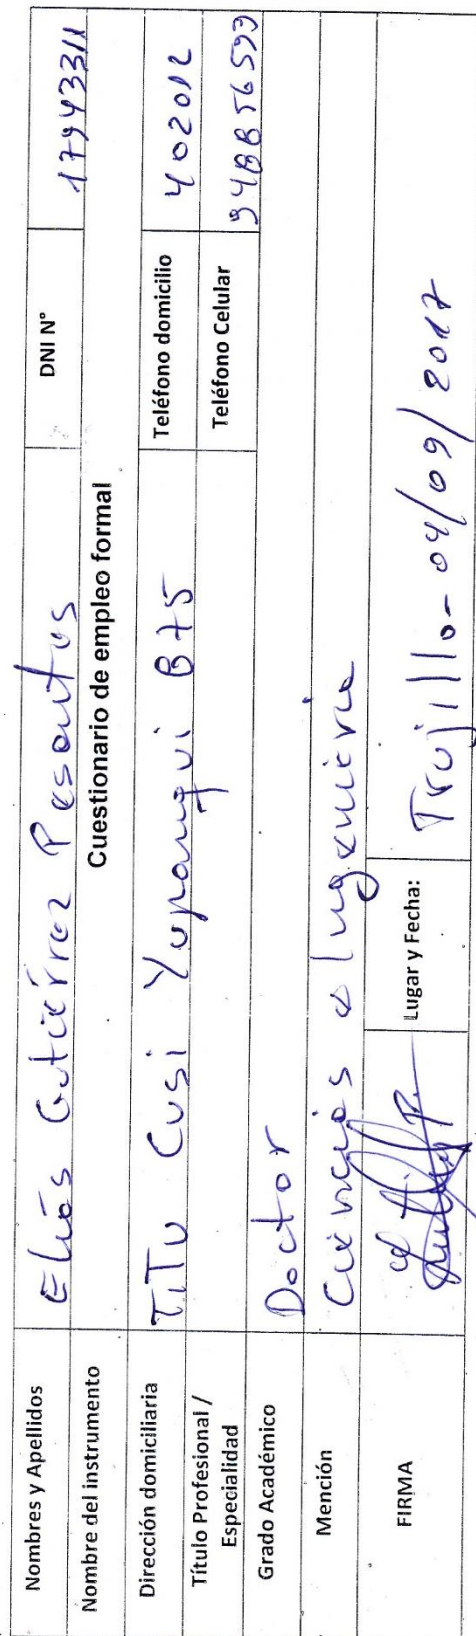 Nombres y Apellidos Elías Gutiérrez Pesantes DNI N° 17943311
Nombre del instrumento Cuestionario de empleo formal
Dirección domiciliaria TiTu Cusi Yupanqui B75 Teléfono domicilio 402012
Título Profesional / Especialidad Teléfono Celular
Grado Académico Doctor
Mención Ciencias e Ingeniería
FIRMA Lugar y Fecha: Trujillo- 04/09/2017